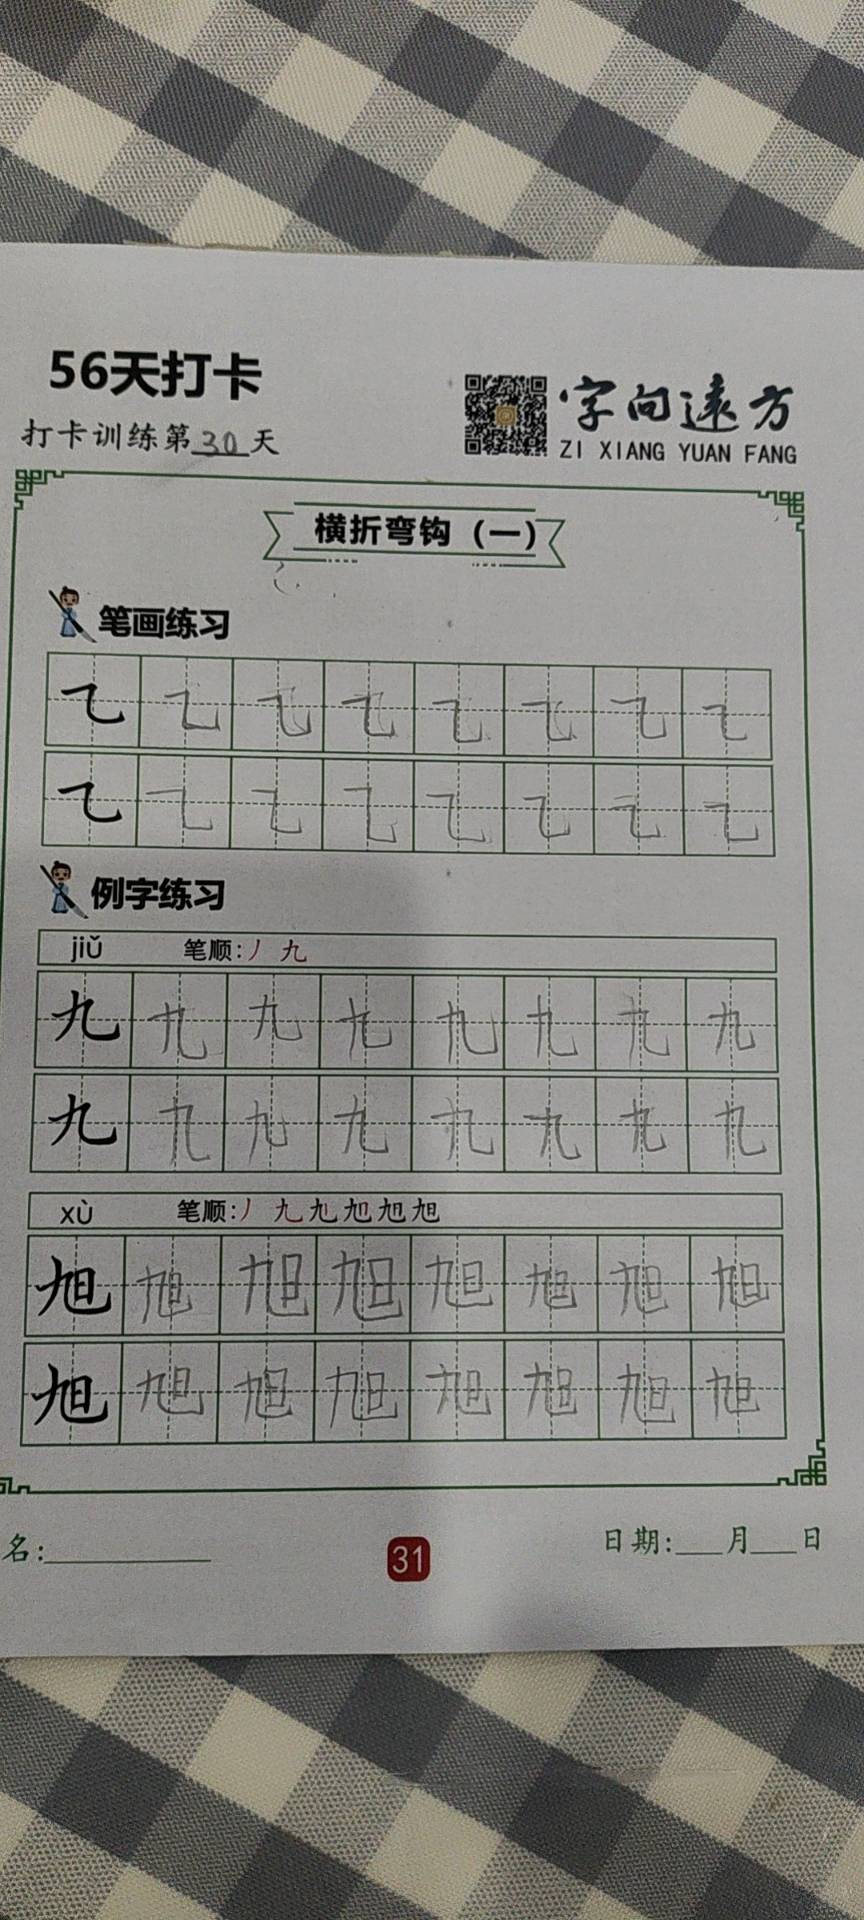 56天打卡
打卡训练第30天
字向远方
ZI XIANG YUAN FANG
横折弯钩（一）
笔画练习
例字练习
jiǔ 笔顺:丿 九
九 九 九 九 九 九 九 九
九 九 九 九 九 九 九 九
xù 笔顺:丿 九 九 旭 旭 旭
旭 旭 旭 旭 旭 旭 旭 旭
旭 旭 旭 旭 旭 旭 旭 旭
名:
31
日期:___月___日